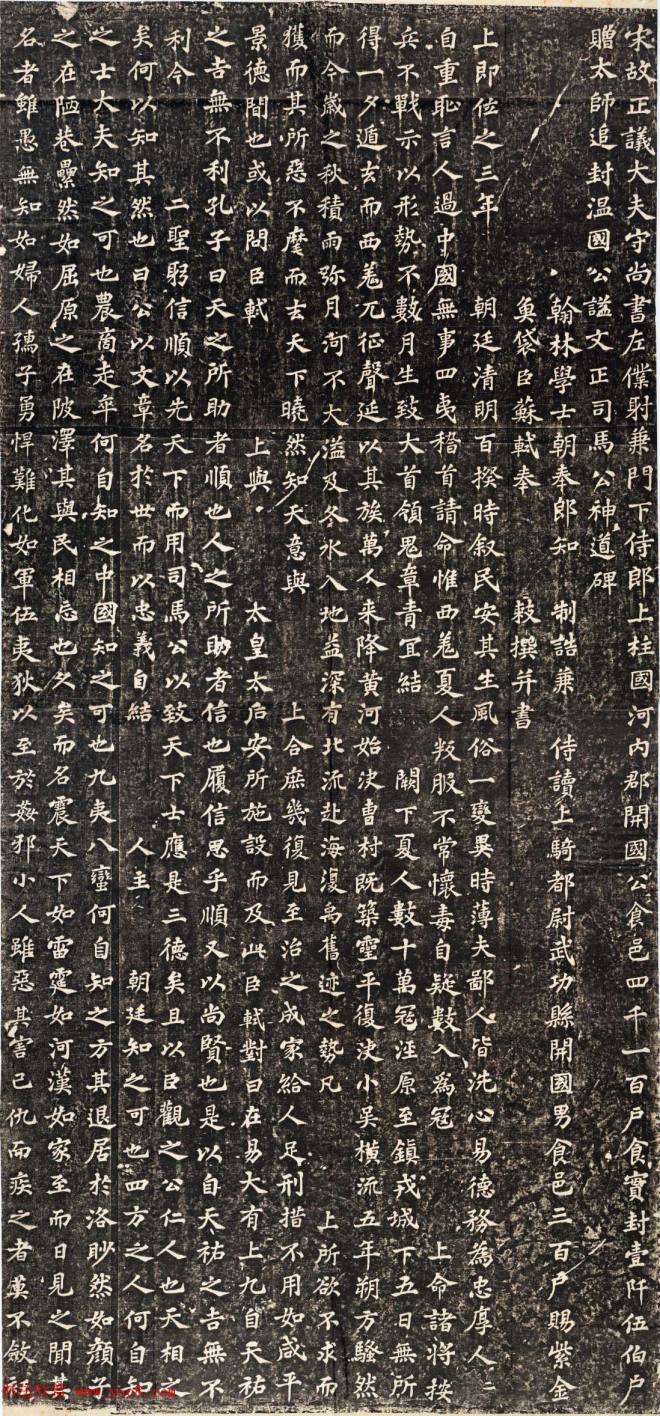 宋故正議大夫守尚書左僕射兼門下侍郎上柱國河內郡開國公食邑四千一百户食實封壹阡伍伯户
贈太師追封溫國公謚文正司馬公神道碑
翰林學士朝奉郎知 制誥兼 侍讀上騎都尉武功縣開國男食邑三百户賜紫金
魚袋臣蘇軾奉 敕撰并書
上即位之三年 朝廷清明百揆時叙民安其生風俗一變異時薄夫鄙人皆洗心易德務為忠厚人人
自重恥言人過中國無事四夷稽首請命惟西羌夏人叛服不常懷毒自疑數入為寇 上命諸將按
兵不戰示以形勢不數月生致大首領鬼章青宜結 闕下夏人數十萬寇涇原至鎮戎城下五日無所
得一夕遁去而西羌兀征聲延以其族萬人来降黃河始决曹村既築靈平復决小吳橫流五年朔方騷然
而今歲之秋積雨弥月河不大溢及冬水入地益深有北流赴海復禹舊迹之勢凡 上所欲不求而
獲而其所惡不麾而去天下曉然知天意與 上合庶幾復見至治之成家給人足刑措不用如咸平
景德間也或以問臣軾 上與 太皇太后安所施設而及此臣軾對曰在易大有上九自天祐
之吉無不利孔子曰天之所助者順也人之所助者信也履信思乎順又以尚賢也是以自天祐之吉無不
利今 二聖躬信順以先天下而用司馬公以致天下士應是三德矣且以臣觀之公仁人也天相之
矣何以知其然也曰公以文章名於世而以忠義自結 人主 朝廷知之可也四方之人何自知
之士大夫知之可也農商走卒何自知之中國知之可也九夷八蠻何自知之方其退居於洛眇然如顏子
之在陋巷纍然如屈原之在陂澤其與民相忘也久矣而名震天下如雷霆如河漢如家至而日見之聞其
名者雖愚無知如婦人孺子勇悍難化如軍伍夷狄以至於姦邪小人雖惡其害己仇而疾之者莫不斂
www.yac8.com